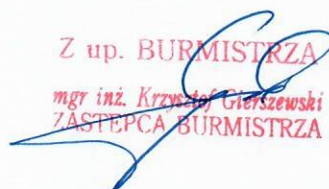 Z up. BURMISTRZA
mgr inż. Krzysztof Gierszewski
ZASTĘPCA BURMISTRZA